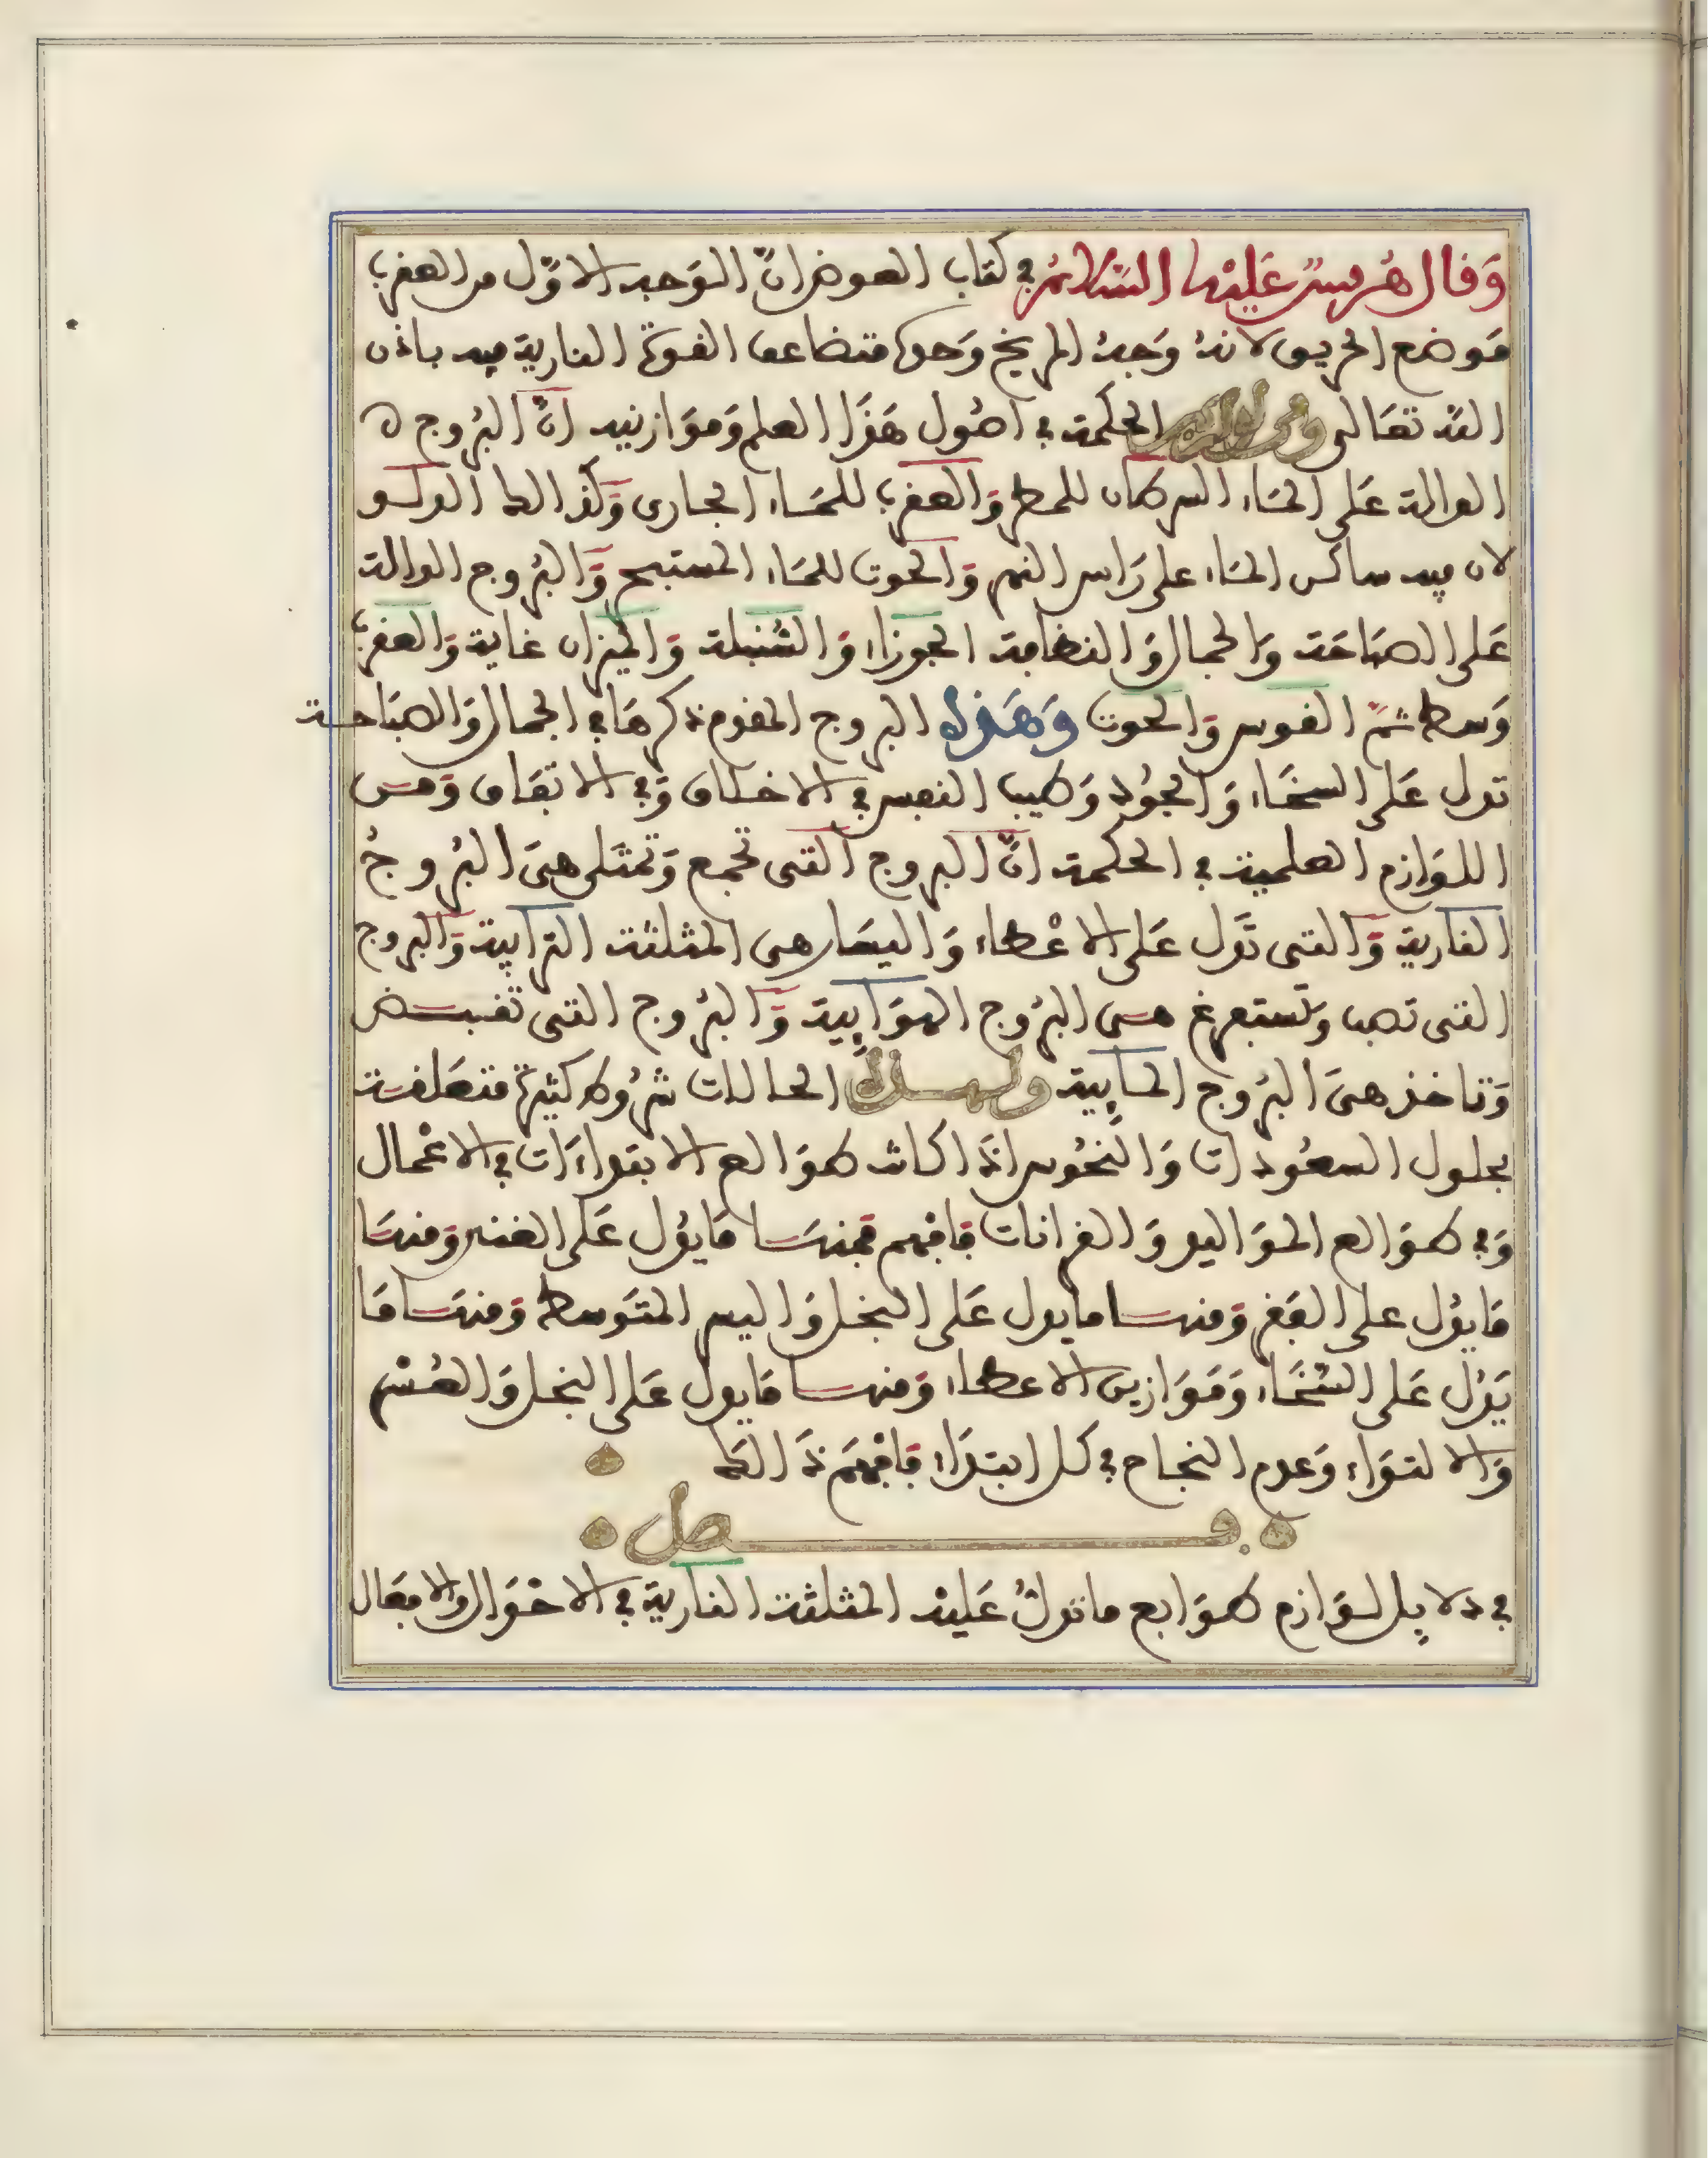 وَقال هُرمسٌ عَليْه السَّلامُ في كتاب العرض انّ الوَجه الاوّل من العقرب
مَوضع الحريق لانهُ وَجهُ المريخ وَحدها فتضاعف القوة النارية فيه باذن
الله تعَالى وفي لوازم الحكمة في اصُول هَذَا العلم وَمَوَازينه انّ البُروج ه
الدالة عَلى المَاء السرطان للمطر وَالعقرب للمَاء الجارى وَكذالك الدلو
لان فيه ساكب المَاء على رَاس النهر وَالحوت للمَاء المستبحر وَالبُروج الدالة
عَلى الصبَاحَة وَالجمال وَالنظافة الجوزاء وَالسُّنبلة وَالميزان غاية وَالعقرب
وَسط ثمّ القوس وَالحوت وَهَذه البروج المقدم ذكرهَا في الجمال وَالصبَاحة
تدل عَلى السخَاء وَالجُود وَطيب النفس في الاخلاق وَفي الاتفاق وَمن
اللوَازم العلمية في الحكمة انّ البروج التى تجمع وَتمتلى هىَ البُروجُ
النارية وَالتى تَدل عَلى الاعْطاء وَاليسَار هى المثلثة الترَابية وَالبروج
التى تصب وَتستفرغ هى البرُوج الهوَايية وَالبرُوج التى تقبض
وَتاخذ هىَ البرُوج المَايية ولهذه الحالات شرُوط كثيرة متعَلقة
بحلول السعُودات وَالنحُوس اذَا كانت طوَالع الابتداءَات في الاعْمال
وَفي طوَالع الموَاليد وَالقرانات فَافهم فمنهَا مَا يدُل عَلى الغنى وَمنهَا
مَا يدُل على الفَقر وَمنهَا ما يدل عَلى البخل وَاليسر المتوَسط وَمنهَا مَا
يَدُل عَلى السّخَاء وَمَوَازين الاعطاء وَمنهَا مَا يدل عَلى البخل وَالعُسْر
وَالالتوَاء وَعدم النجاح في كل ابتدَاء فَافهَم ذَالك
فصل
في دلايل لوَازم طوَابع ما تدلّ عَليْه المثلثة النارية في الاحْوَال والافعَال